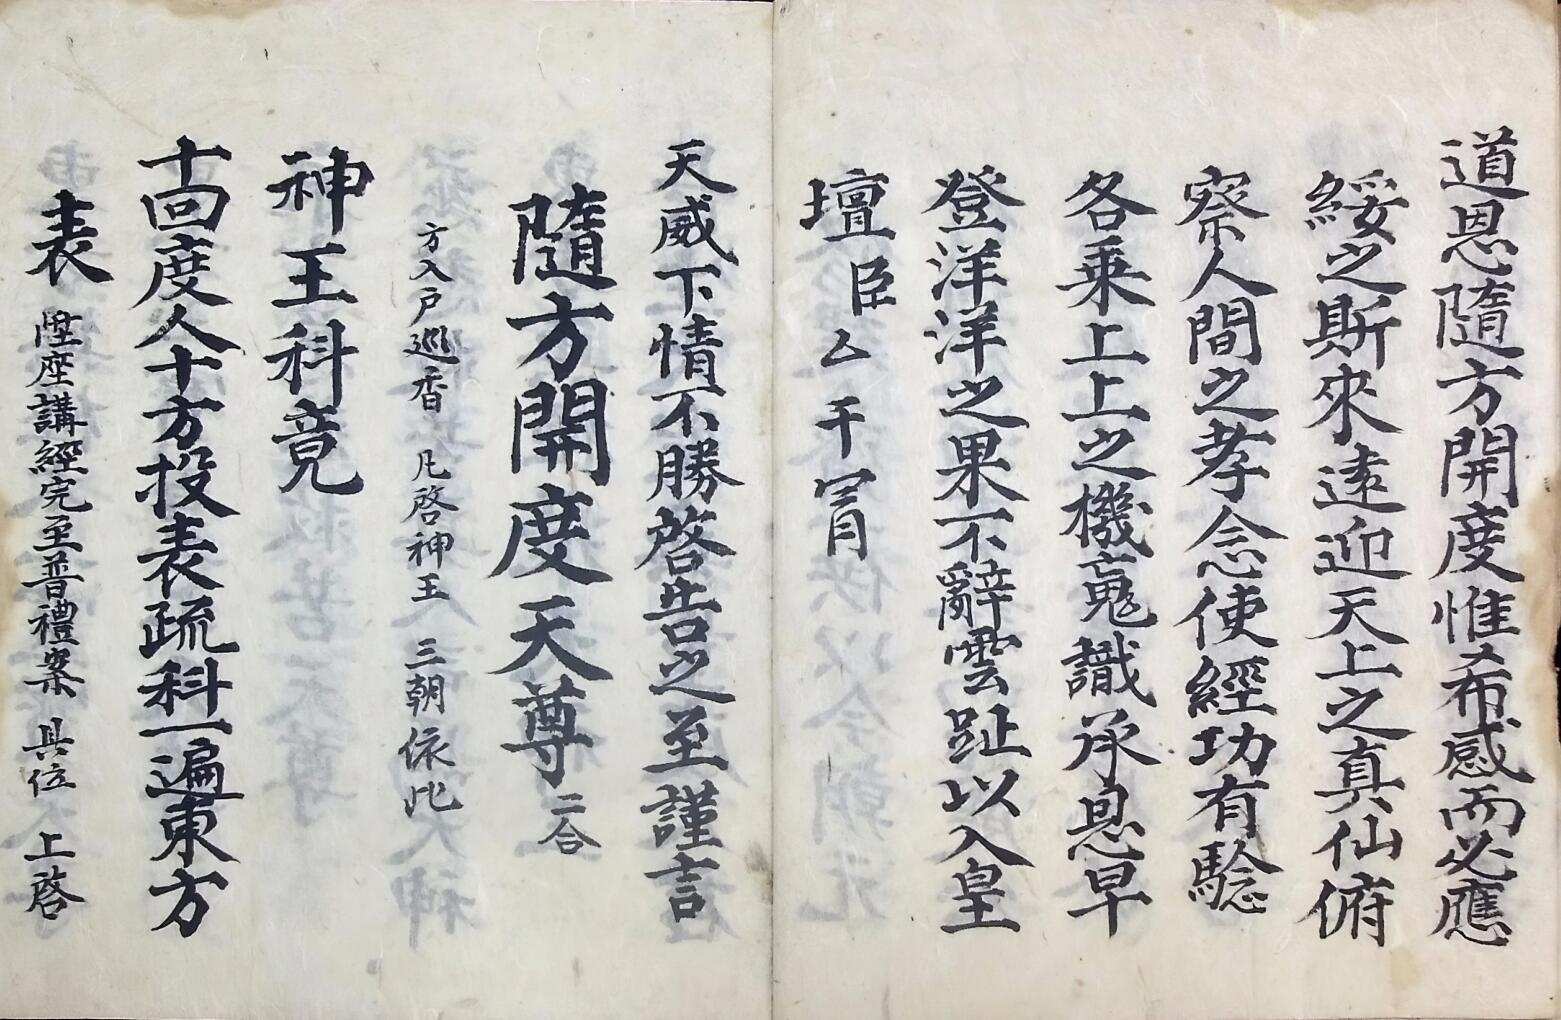 道恩隨方開度惟希感而必應
綏之斯來遠迎天上之真仙俯
察人間之孝念使經功有驗
各乗上上之機䰟識承恩早
登洋洋之果不辭雲趾以入皇
壇臣厶干冒
天威下情不勝啓告之至謹言
隨方開度天尊二合
方入戶巡香凡啓神王三朝依此
神王科竟
十回度人十方投表疏科一遍東方
表陞座講經完至普禮案具位上啓